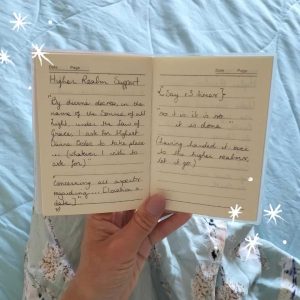 Date Page
Higher Realm Support
"By divine decree, in the
name of the Source of all
Light, under the law of
Grace, I ask for Highest
Divine Order to take place
... (whatever I wish to
ask for).
Concerning all aspects
regarding... [location &
date]"
Date Page
{Say x3 times}
"So it is it is so
it is done."
(Having handed it over
to the higher realms,
let it go)